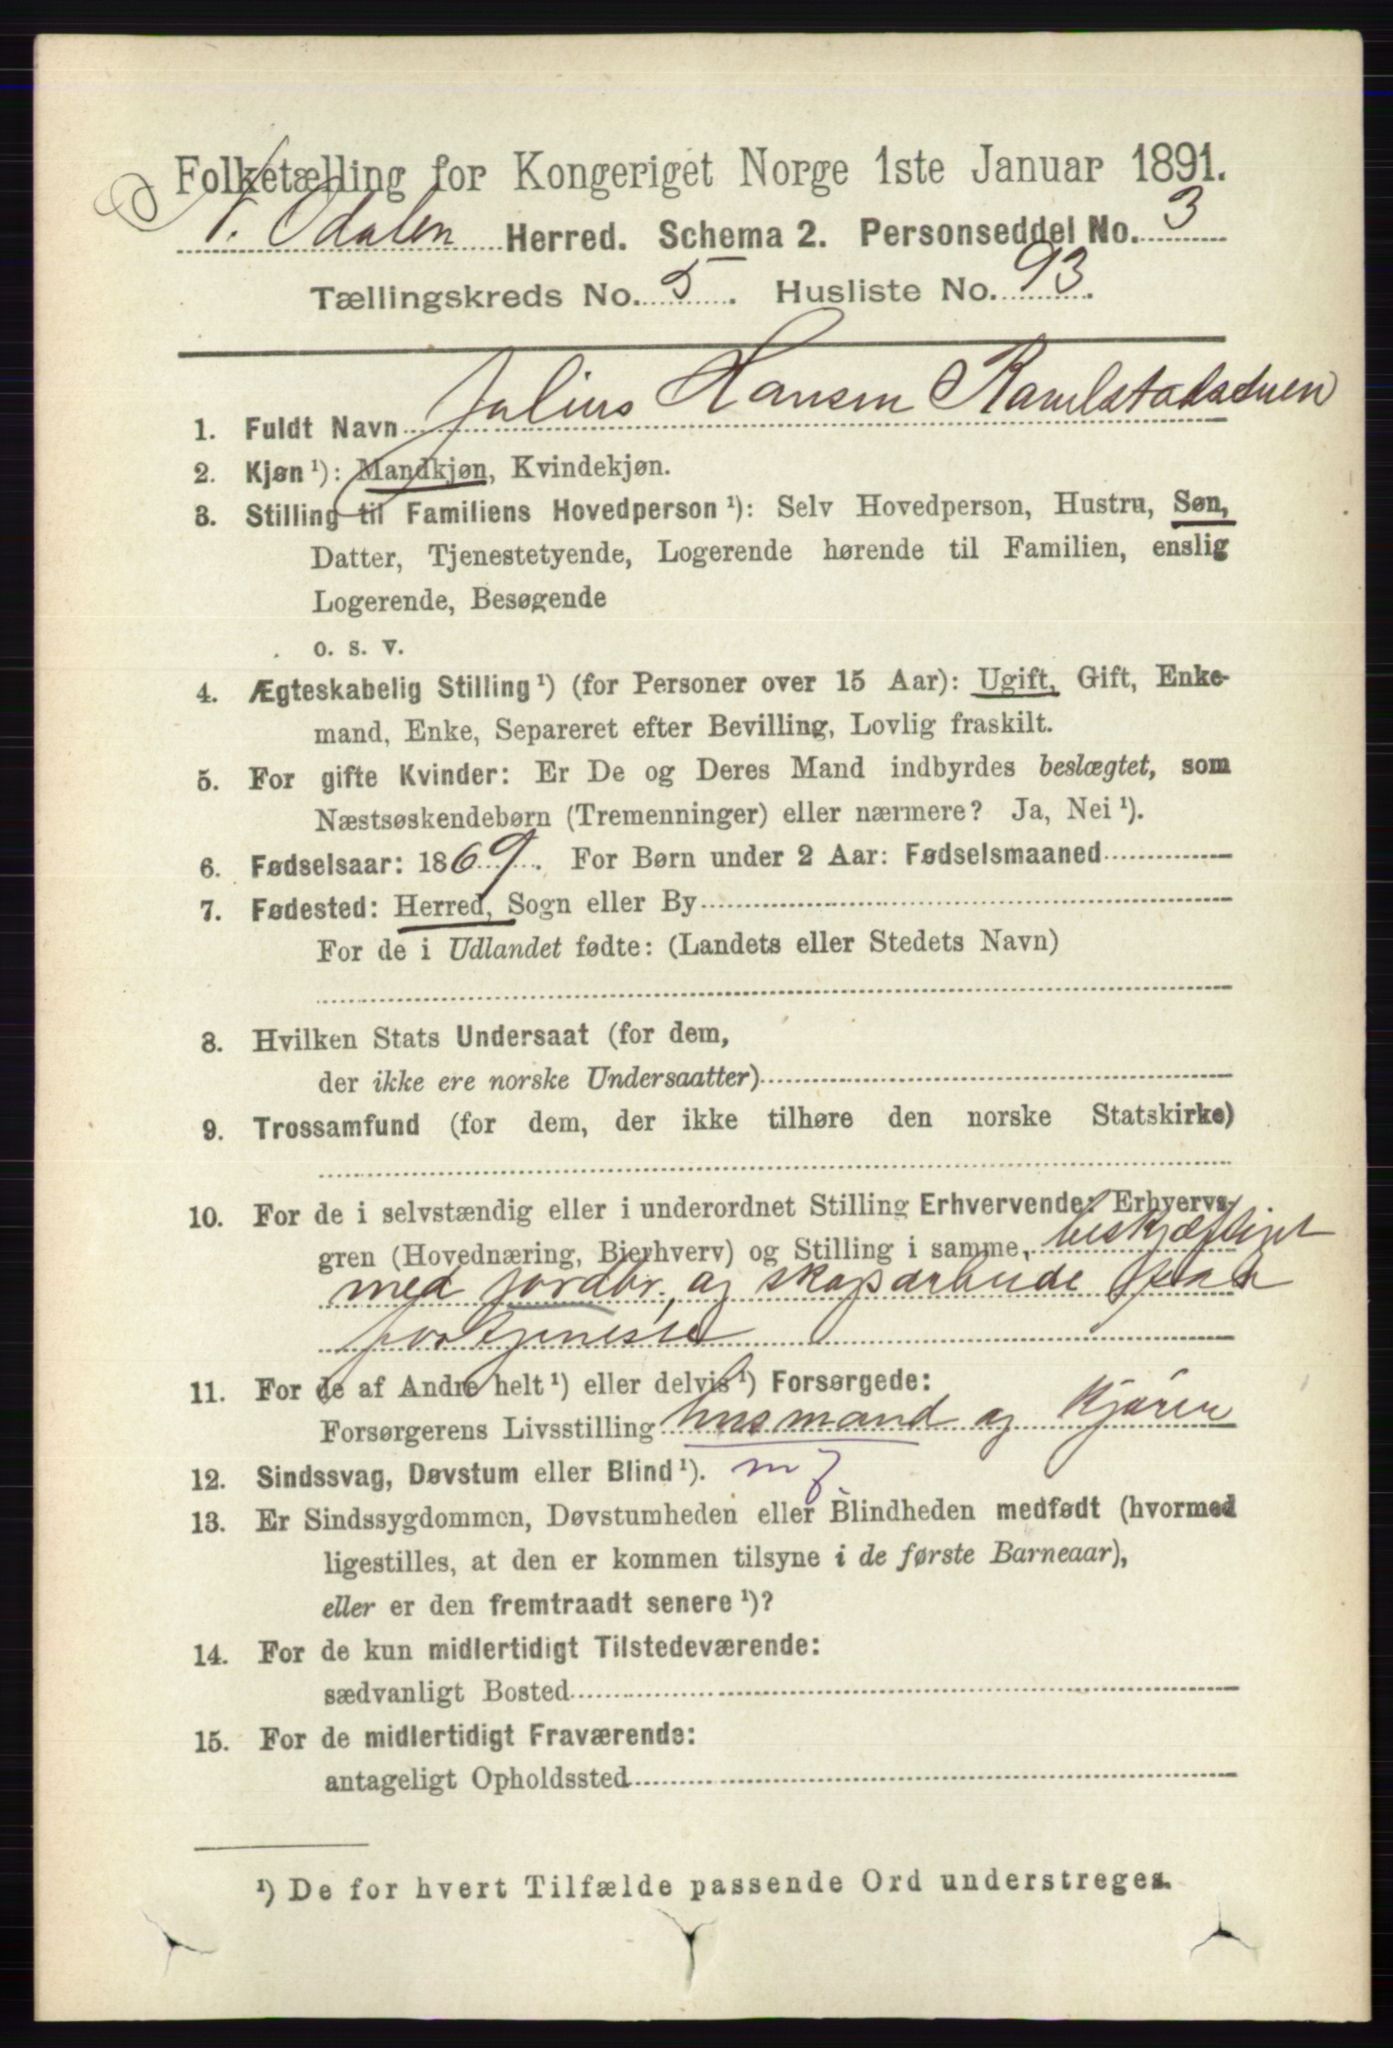 Folketælling for Kongeriget Norge 1ste Januar 1891.
Odalen Herred. Schema 2. Personseddel No. 3
Tællingskreds No. 5. Husliste No. 93.
1. Fuldt Navn Julius Hansen
2. Kjøn ¹): Mandkjøn, Kvindekjøn.
3. Stilling til Familiens Hovedperson ¹): Selv Hovedperson, Hustru, Søn,
Datter, Tjenestetyende, Logerende hørende til Familien, enslig
Logerende, Besøgende
o. s. v.
4. Ægteskabelig Stilling ¹) (for Personer over 15 Aar): Ugift, Gift, Enke-
mand, Enke, Separeret efter Bevilling, Lovlig fraskilt.
5. For gifte Kvinder: Er De og Deres Mand indbyrdes beslægtet, som
Næstsøskendebørn (Tremenninger) eller nærmere? Ja, Nei ¹).
6. Fødselsaar: 1869. For Børn under 2 Aar: Fødselsmaaned
7. Fødested: Herred, Sogn eller By
For de i Udlandet fødte: (Landets eller Stedets Navn)
8. Hvilken Stats Undersaat (for dem,
der ikke ere norske Undersaatter)
9. Trossamfund (for dem, der ikke tilhøre den norske Statskirke)
10. For de i selvstændig eller i underordnet Stilling Erhvervende: Erhvervs-
gren (Hovednæring, Bierhverv) og Stilling i samme, beskjæftiget
med jordbr., og skogsarbeide paa
fortjeneste
11. For de af Andre helt ¹) eller delvis ¹) Forsørgede:
Forsørgerens Livsstilling husmand og Kjører
12. Sindssvag, Døvstum eller Blind ¹).
13. Er Sindssygdommen, Døvstumheden eller Blindheden medfødt (hvormed
ligestilles, at den er kommen tilsyne i de første Barneaar),
eller er den fremtraadt senere ¹)?
14. For de kun midlertidigt Tilstedeværende:
sædvanligt Bosted
15. For de midlertidigt Fraværende:
antageligt Opholdssted
¹) De for hvert Tilfælde passende Ord understreges.